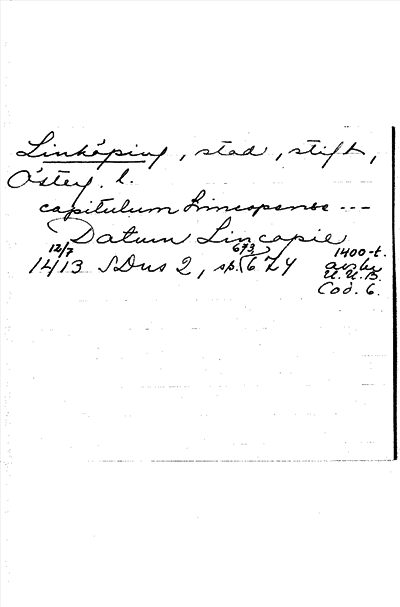 Linköping, stad, stift,
Österg. l.
capitulum Lincopense ---
Datum Lincopie
12/7 1413 SDns 2, sp. 673
1400-t.
avskr.
U.U.B.
Cod. 6.